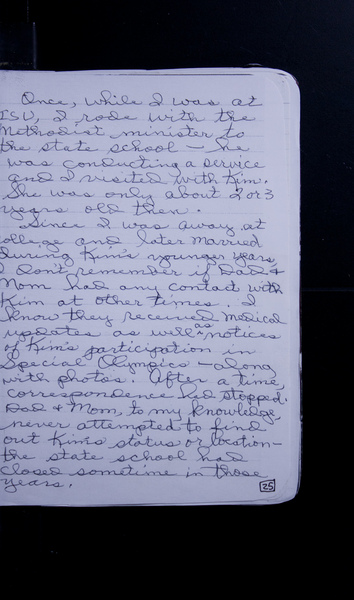 Once, while I was at
ISU, I rode with the
Methodist minister to
the state school – he
was conducting a service
and I visited with Kim.
She was only about 2 or 3
years old then.
Since I was away at
college and later married
during Kim's younger years,
I don't remember if Dad &
Mom had any contact with
Kim at other times. I
know they received medical
updates as well as notices
of Kim's participation in
Special Olympics – along
with photos. After a time,
correspondence had stopped.
Dad & Mom, to my knowledge,
never attempted to find
out Kim's status or location –
the state school had
closed sometime in those
years.
25